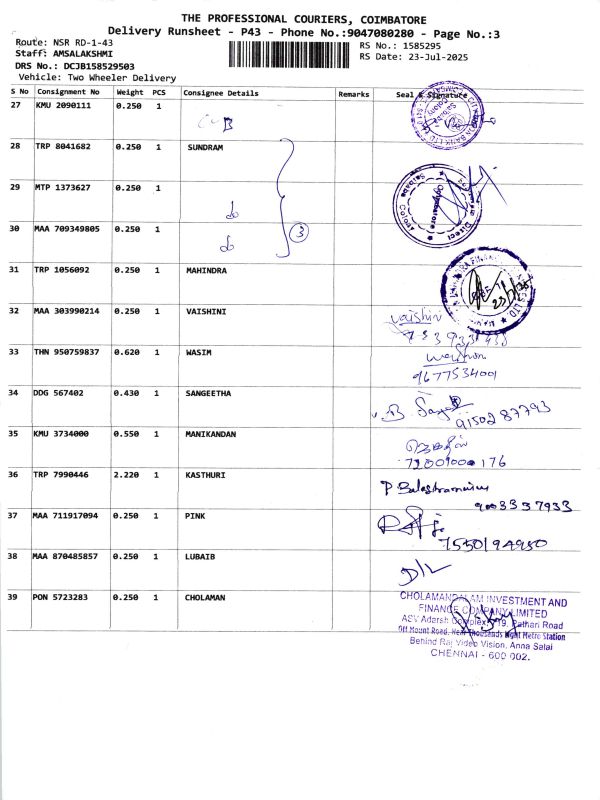 THE PROFESSIONAL COURIERS, COIMBATORE
Delivery Runsheet - P43 - Phone No.:9047080280 - Page No.:3
Route: NSR RD-1-43
RS No.: 1585295
Staff: AMSALAKSHMI
RS Date: 23-Jul-2025
DRS No.: DCJB158529503
Vehicle: Two Wheeler Delivery
S No Consignment No Weight PCS Consignee Details Remarks Seal & Signature
27 KMU 2090111 0.250 1
CUB
28 TRP 8041682 0.250 1 SUNDRAM
29 MTP 1373627 0.250 1
do
3
30 MAA 709349805 0.250 1
do
31 TRP 1056092 0.250 1 MAHINDRA
32 MAA 303990214 0.250 1 VAISHINI
Vaishini
33 THN 950759837 0.620 1 WASIM
9677534001
34 DDG 567402 0.430 1 SANGEETHA
9150287793
35 KMU 3734000 0.550 1 MANIKANDAN
36 TRP 7990446 2.220 1 KASTHURI
9003337933
37 MAA 711917094 0.250 1 PINK
7550194950
38 MAA 870485857 0.250 1 LUBAIB
D/L
39 PON 5723283 0.250 1 CHOLAMAN
CHOLAMANDALAM INVESTMENT AND
FINANCE COMPANY LIMITED
ASV Adarsh Complex, 719, Pathari Road
Off Mount Road, Near Thousands Light Metro Station
Behind Raj Video Vision, Anna Salai
CHENNAI - 600 002.